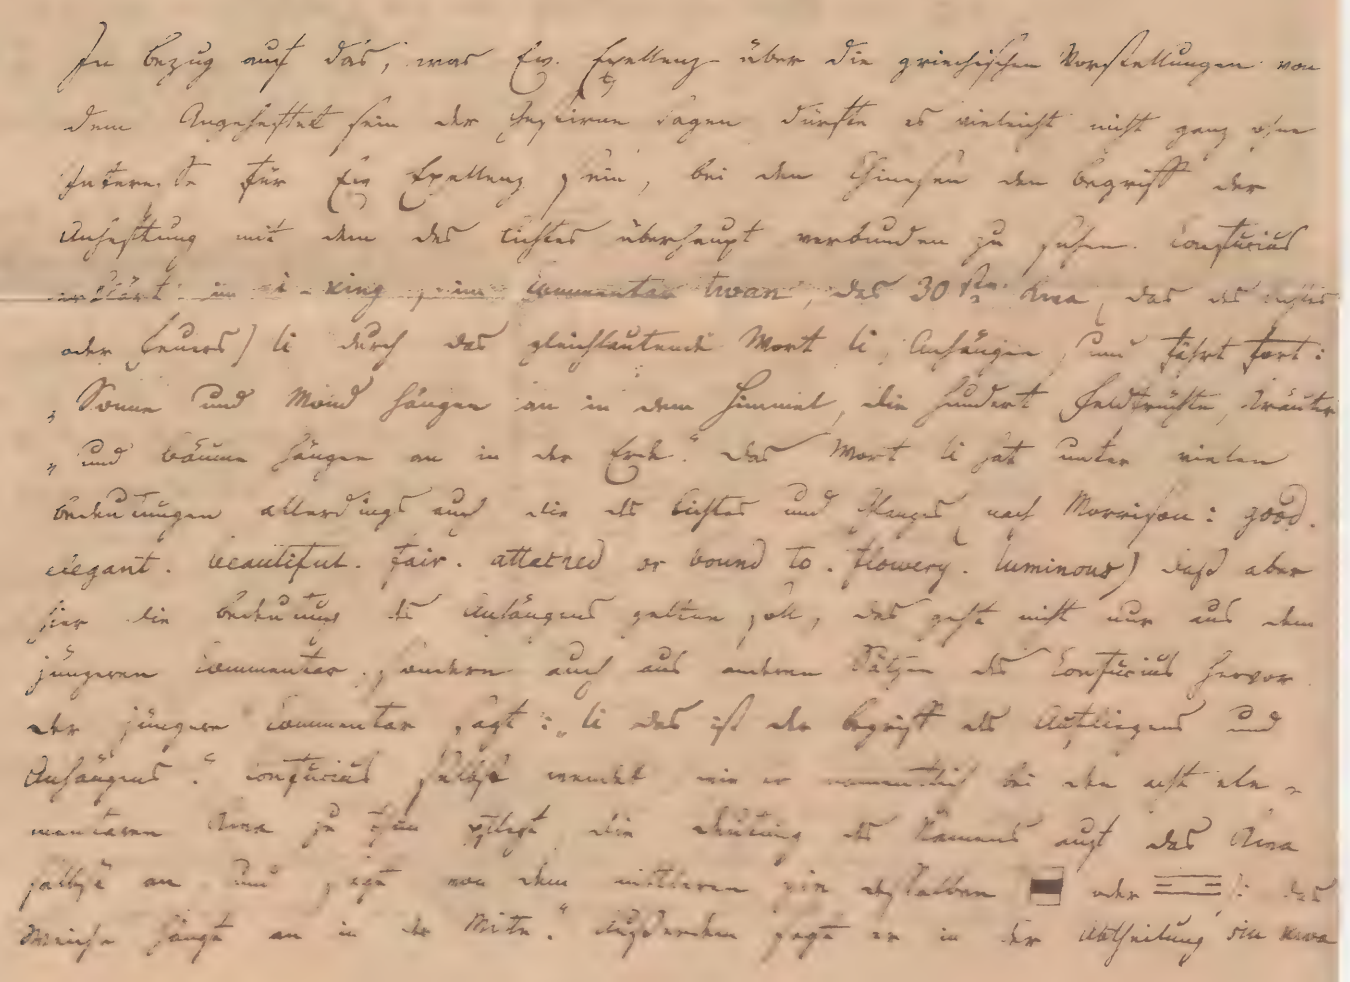 In Bezug auf das, was Ew. Exellenz über die griechischen Vorstellungen von
dem Angeheftet sein der Gestirne sagen dürfte es vieleicht nicht ganz ohne
Interesse für Ew Exellenz sein, bei den Chinesen den Begriff der
Anheftung mit dem des Lichtes überhaupt verbunden zu sehen. Confucius
erklärt im i-king, seinem Commentar twan, das 30ste kwa, das des Lichts
oder Feuers) li durch das gleichlautende Wort li, Anhängen, und fährt fort:
„Sonne und Mond hängen an in dem Himmel, die hundert Feldfrüchte, Kräuter
„und Bäume hängen an in der Erde." Das Wort li hat unter vielen
Bedeutungen allerdings auch die des Lichtes und Glanzes (nach Morrison: good.
elegant. beautiful. fair. attatced or bound to. flowery. luminous) daß aber
hier die Bedeutung des Anhängens gelten soll, das geht nicht nur aus dem
jüngeren Commentar, sondern auch aus anderen Sätzen des Confucius hervor.
der jüngere Commentar sagt: „li das ist der Begriff des Aufliegens und
Anhängens." Confucius selbst wendet wie er namentlich bei den acht ele-
mentaren kwa zu thun pflegt, die Deutung des Namens auf das kwa
selbst an und sagt von dem mittleren desselben oder li: das
Weiche hängt an in der Mitte." Außerdem sagt er in der Abtheilung kwa